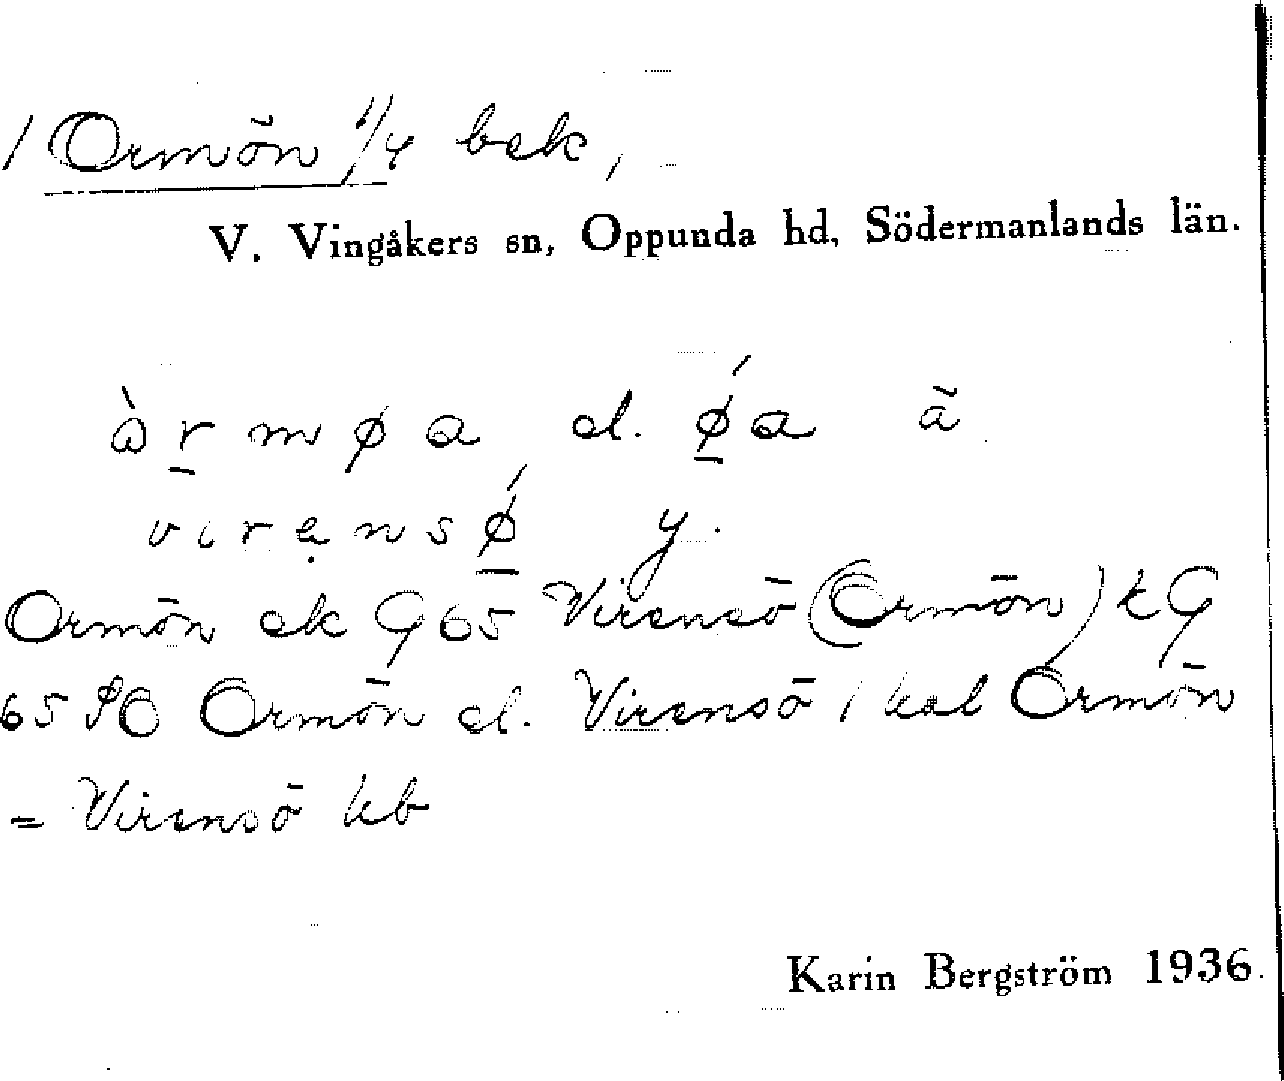 1 Ormön 1/4 bek,
V. Vingåkers sn, Oppunda hd, Södermanlands län.
àrmøa el. ǿa ã
virẹnsǿ y.
Ormön ek G 65 Virensö (Ormön) k G
65 SO Ormön el. Virensö / kal Ormön
= Virensö kb
Karin Bergström 1936.